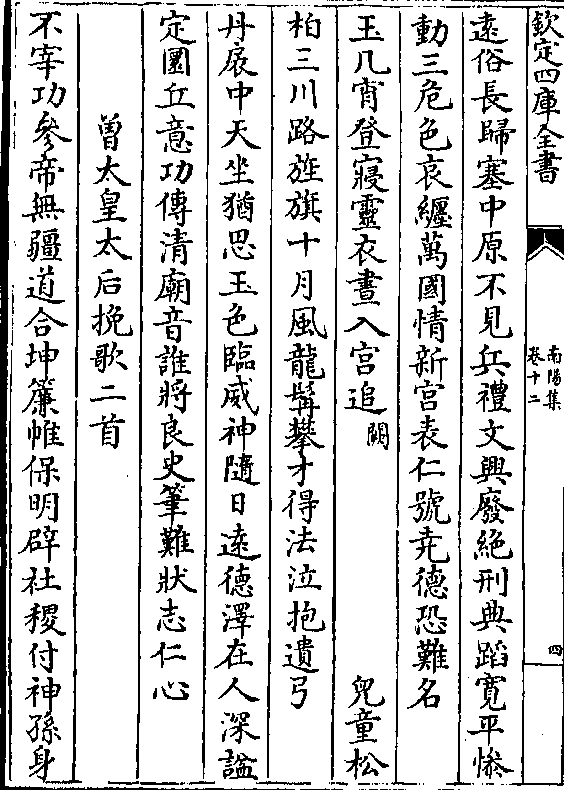 欽定四庫全書
南陽集
卷十二
四
遠俗長歸塞中原不見兵禮文興廢絶刑典蹈寛平慘
動三危色哀纏萬國情新宫表仁號堯德恐難名
玉几宵登寢靈衣晝入宫追闕兒童松
柏三川路旌旗十月風龍髯攀才得法泣抱遺弓
丹扆中天坐猶思玉色臨威神隨日逺德澤在人深謚
定圜丘意功傳清廟音誰將良史筆難狀志仁心
曽太皇太后挽歌二首
不宰功參帝無疆道合坤簾帷保明辟社稷付神孫身